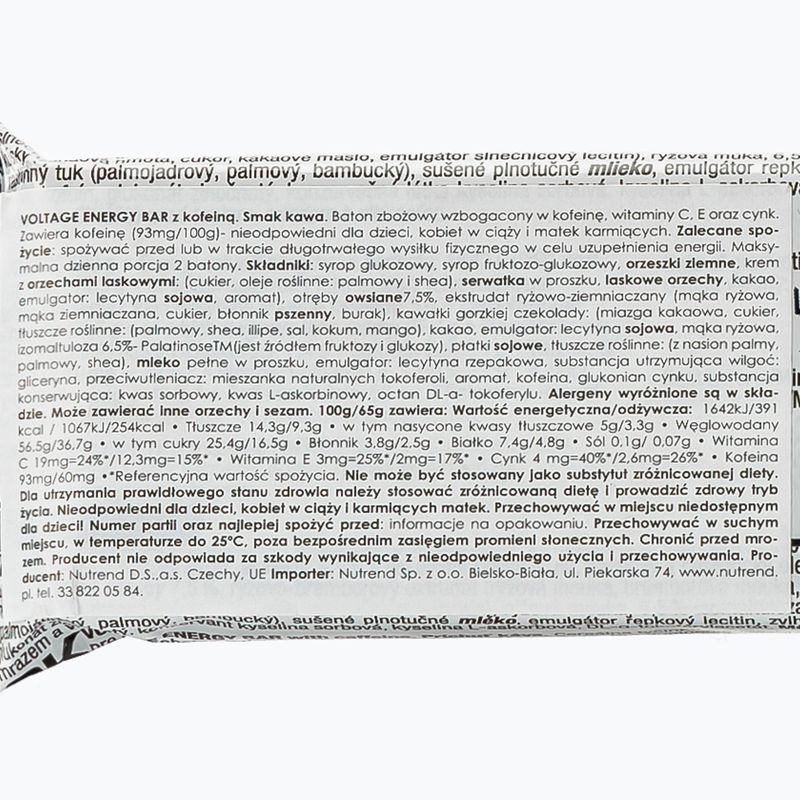 cukor, kakaové maslo, emulgátor slnečnicový lecitín), ryžová múka,
tuk (palmojadrový, palmový, bambucký), sušené plnotučné mlieko, emulgátor
VOLTAGE ENERGY BAR z kofeiną. Smak kawa. Baton zbożowy wzbogacony w kofeinę, witaminy C, E oraz cynk.
Zawiera kofeinę (93mg/100g)- nieodpowiedni dla dzieci, kobiet w ciąży i matek karmiących. Zalecane spo-
życie: spożywać przed lub w trakcie długotrwałego wysiłku fizycznego w celu uzupełnienia energii. Maksy-
malna dzienna porcja 2 batony. Składniki: syrop glukozowy, syrop fruktozo-glukozowy, orzeszki ziemne, krem
z orzechami laskowymi: (cukier, oleje roślinne: palmowy i shea), serwatka w proszku, laskowe orzechy, kakao,
emulgator: lecytyna sojowa, aromat), otręby owsiane7,5%, ekstrudat ryżowo-ziemniaczany (mąka ryżowa,
mąka ziemniaczana, cukier, błonnik pszenny, burak), kawałki gorzkiej czekolady: (miazga kakaowa, cukier,
tłuszcze roślinne: (palmowy, shea, illipe, sal, kokum, mango), kakao, emulgator: lecytyna sojowa, mąka ryżowa,
izomaltuloza 6,5%- PalatinoseTM(jest źródłem fruktozy i glukozy), płatki sojowe, tłuszcze roślinne: (z nasion palmy,
palmowy, shea), mleko pełne w proszku, emulgator: lecytyna rzepakowa, substancja utrzymująca wilgoć:
gliceryna, przeciwutleniacz: mieszanka naturalnych tokoferoli, aromat, kofeina, glukonian cynku, substancja
konserwująca: kwas sorbowy, kwas L-askorbinowy, octan DL-a- tokoferylu. Alergeny wyróżnione są w skła-
dzie. Może zawierać inne orzechy i sezam. 100g/65g zawiera: Wartość energetyczna/odżywcza: 1642kJ/391
kcal / 1067kJ/254kcal • Tłuszcze 14,3g/9,3g • w tym nasycone kwasy tłuszczowe 5g/3,3g • Węglowodany
56,5g/36,7g • w tym cukry 25,4g/16,5g • Błonnik 3,8g/2,5g • Białko 7,4g/4,8g • Sól 0,1g/0,07g • Witamina
C 19mg=24%*/12,3mg=15%* • Witamina E 3mg=25%*/2mg=17%* • Cynk 4 mg=40%*/2,6mg=26%* • Kofeina
93mg/60mg •*Referencyjna wartość spożycia. Nie może być stosowany jako substytut zróżnicowanej diety.
Dla utrzymania prawidłowego stanu zdrowia należy stosować zróżnicowaną dietę i prowadzić zdrowy tryb
życia. Nieodpowiedni dla dzieci, kobiet w ciąży i karmiących matek. Przechowywać w miejscu niedostępnym
dla dzieci! Numer partii oraz najlepiej spożyć przed: informacje na opakowaniu. Przechowywać w suchym
miejscu, w temperaturze do 25°C, poza bezpośrednim zasięgiem promieni słonecznych. Chronić przed mro-
zem. Producent nie odpowiada za szkody wynikające z nieodpowiedniego użycia i przechowywania. Pro-
ducent: Nutrend D.S.,a.s. Czechy, UE Importer: Nutrend Sp. z o.o. Bielsko-Biała, ul. Piekarska 74, www.nutrend.
pl. tel. 33 822 05 84.
palmový, sušené plnotučné mléko, emulgátor řepkový lecitin,
kyselina sorbová, kyselina L-askorbová,
ENERGY BAR with caffeine.
mrazem a